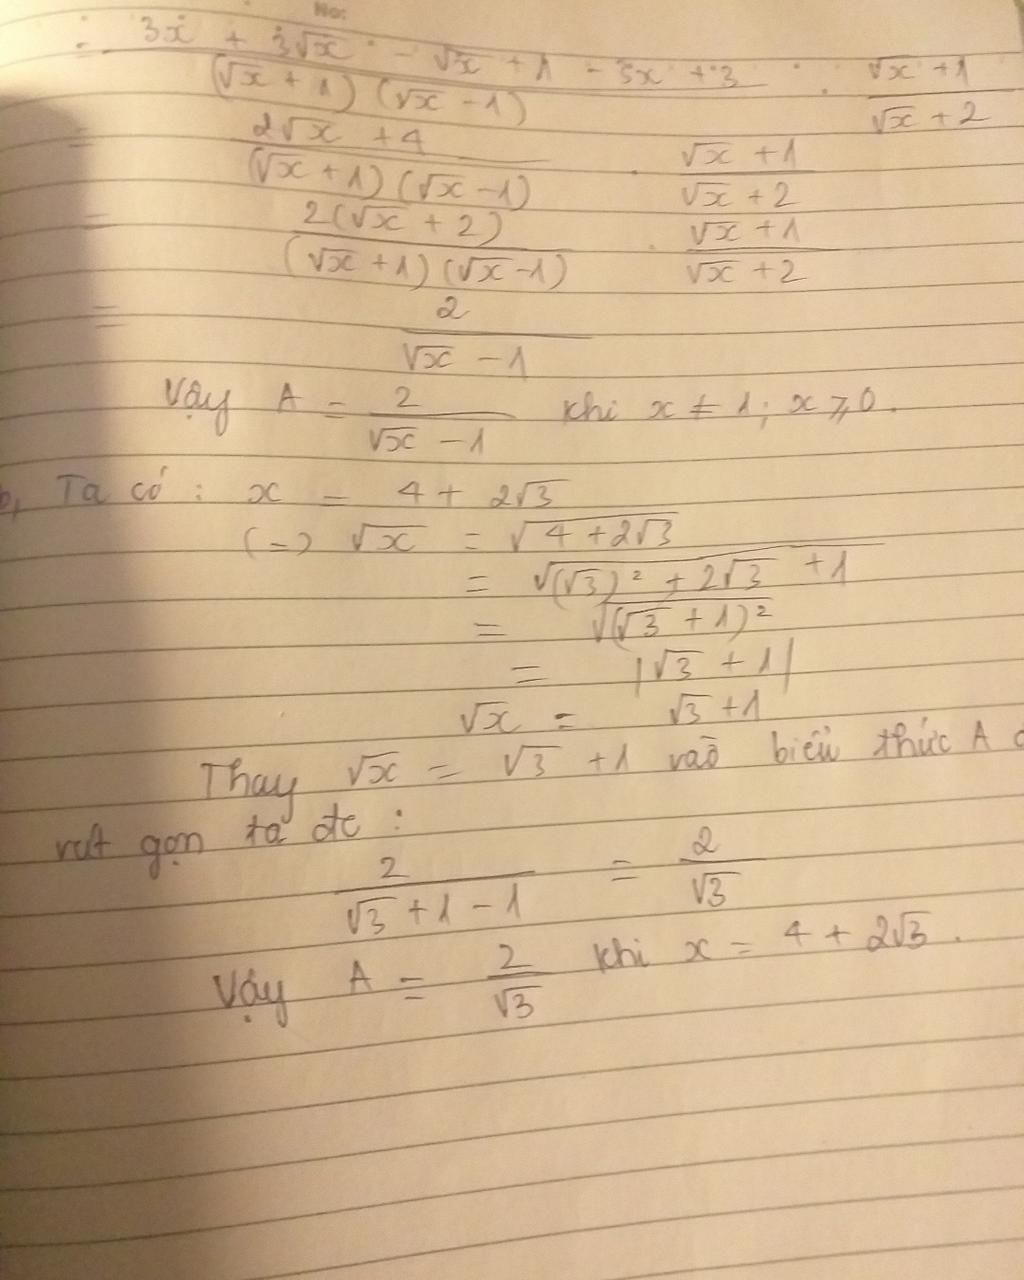 No:
= 3x + 3√x - √x + 1 - 3x + 3 / (√x + 1)(√x - 1) . √x + 1 / √x + 2
= 2√x + 4 / (√x + 1)(√x - 1) . √x + 1 / √x + 2
= 2(√x + 2) / (√x + 1)(√x - 1) . √x + 1 / √x + 2
= 2 / √x - 1
Vậy A = 2 / √x - 1 khi x ≠ 1; x ⩾ 0.
b, Ta có: x = 4 + 2√3
(=) √x = √(4 + 2√3)
= √((√3)² + 2√3 + 1)
= √((√3 + 1)²)
= |√3 + 1|
√x = √3 + 1
Thay √x = √3 + 1 vào biểu thức A
rút gọn ta đc :
2 / √3 + 1 - 1 = 2 / √3
Vậy A = 2 / √3 khi x = 4 + 2√3.